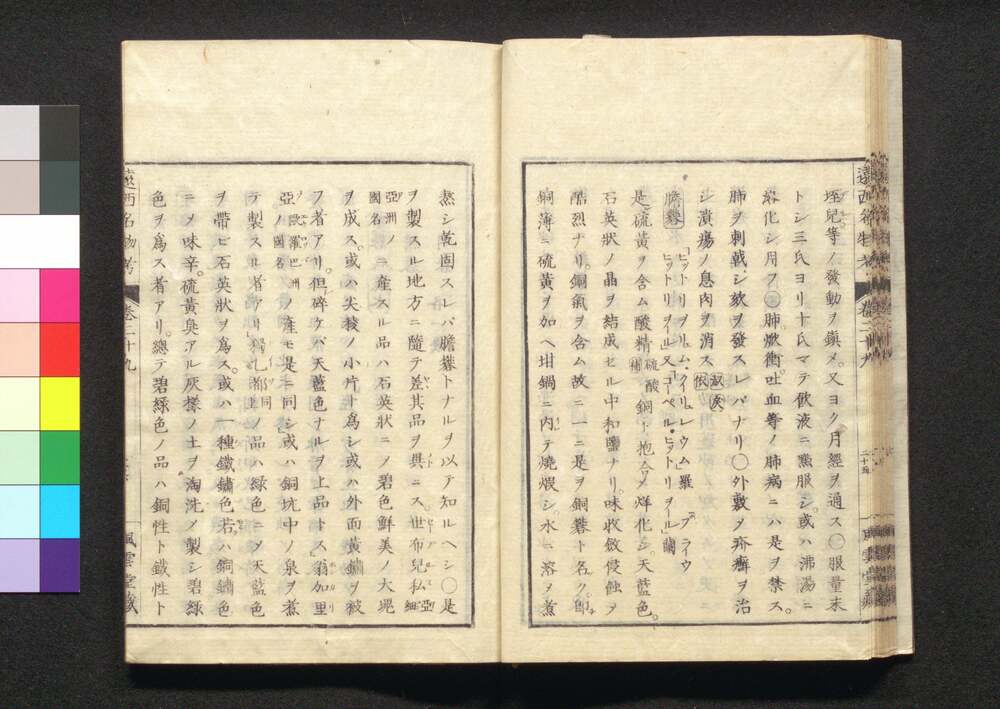 遠西名物考 卷二十九
痙兒等ノ發動ヲ鎮メ。又ヨク月經ヲ通ス〇服量末
トシ三氏ヨリ十氏マテ飲液ニ點服シ。或ハ沸湯ニ
溶化シ用フ〇肺焮衝。吐血等ノ肺病ニハ是ヲ禁ス。
肺ヲ刺戟シ欬ヲ發スレバナリ〇外敷ノ疥癬ヲ治
シ潰瘍ノ息肉ヲ消ス
膽礬「ヒットリヲーリュム・イーリレウム」羅「ブラーウ
ヒットリヲール」又「コーペル・ヒットリヲール」蘭
是硫黃ヲ含ム酸精硫酸銅ト抱合ノ烊化シ。天藍色。
石英狀ノ晶ヲ結成セル中和鹽ナリ。味收斂侵蝕ノ
酷烈ナリ。銅氣ヲ含ム故ニ一ニ是ヲ銅礬ト名ク。卽
銅薄ニ硫黃ヲ加ヘ坩鍋ニ内テ燒煆シ。水ニ溶メ煮
熬シ乾固スレバ膽礬トナルヲ以テ知ルヘシ〇是
ヲ製スル地方ニ隨テ差其品ヲ異ニス。世布兒私亞細
亞洲ノ國名ニ產スル品ハ石英狀ニノ碧色鮮美ノ大塊
ヲ成ス。或ハ尖稜ノ小片ヲ爲シ或ハ外面黃鏽ヲ被
フ者アリ。但碎ケバ天藍色ナルヲ上品トス翁加里
亞歐羅巴洲ノ國名ノ產モ是ニ同シ或ハ銅坑中ノ泉ヲ煮
テ製スル者アリ獨乙都同上ノ品ハ綠色ニノ天藍色
ヲ帶ビ石英狀ヲ爲ス。或ハ一種鐵鏽色若ハ銅鏽色
ニノ味辛。硫黃臭アル灰樣ノ土ヲ淘洗ノ製シ碧綠
色ヲ爲ス者アリ。總テ碧綠色ノ品ハ銅性ト鐵性ト
遠西名物考 卷二十九 風雲堂藏